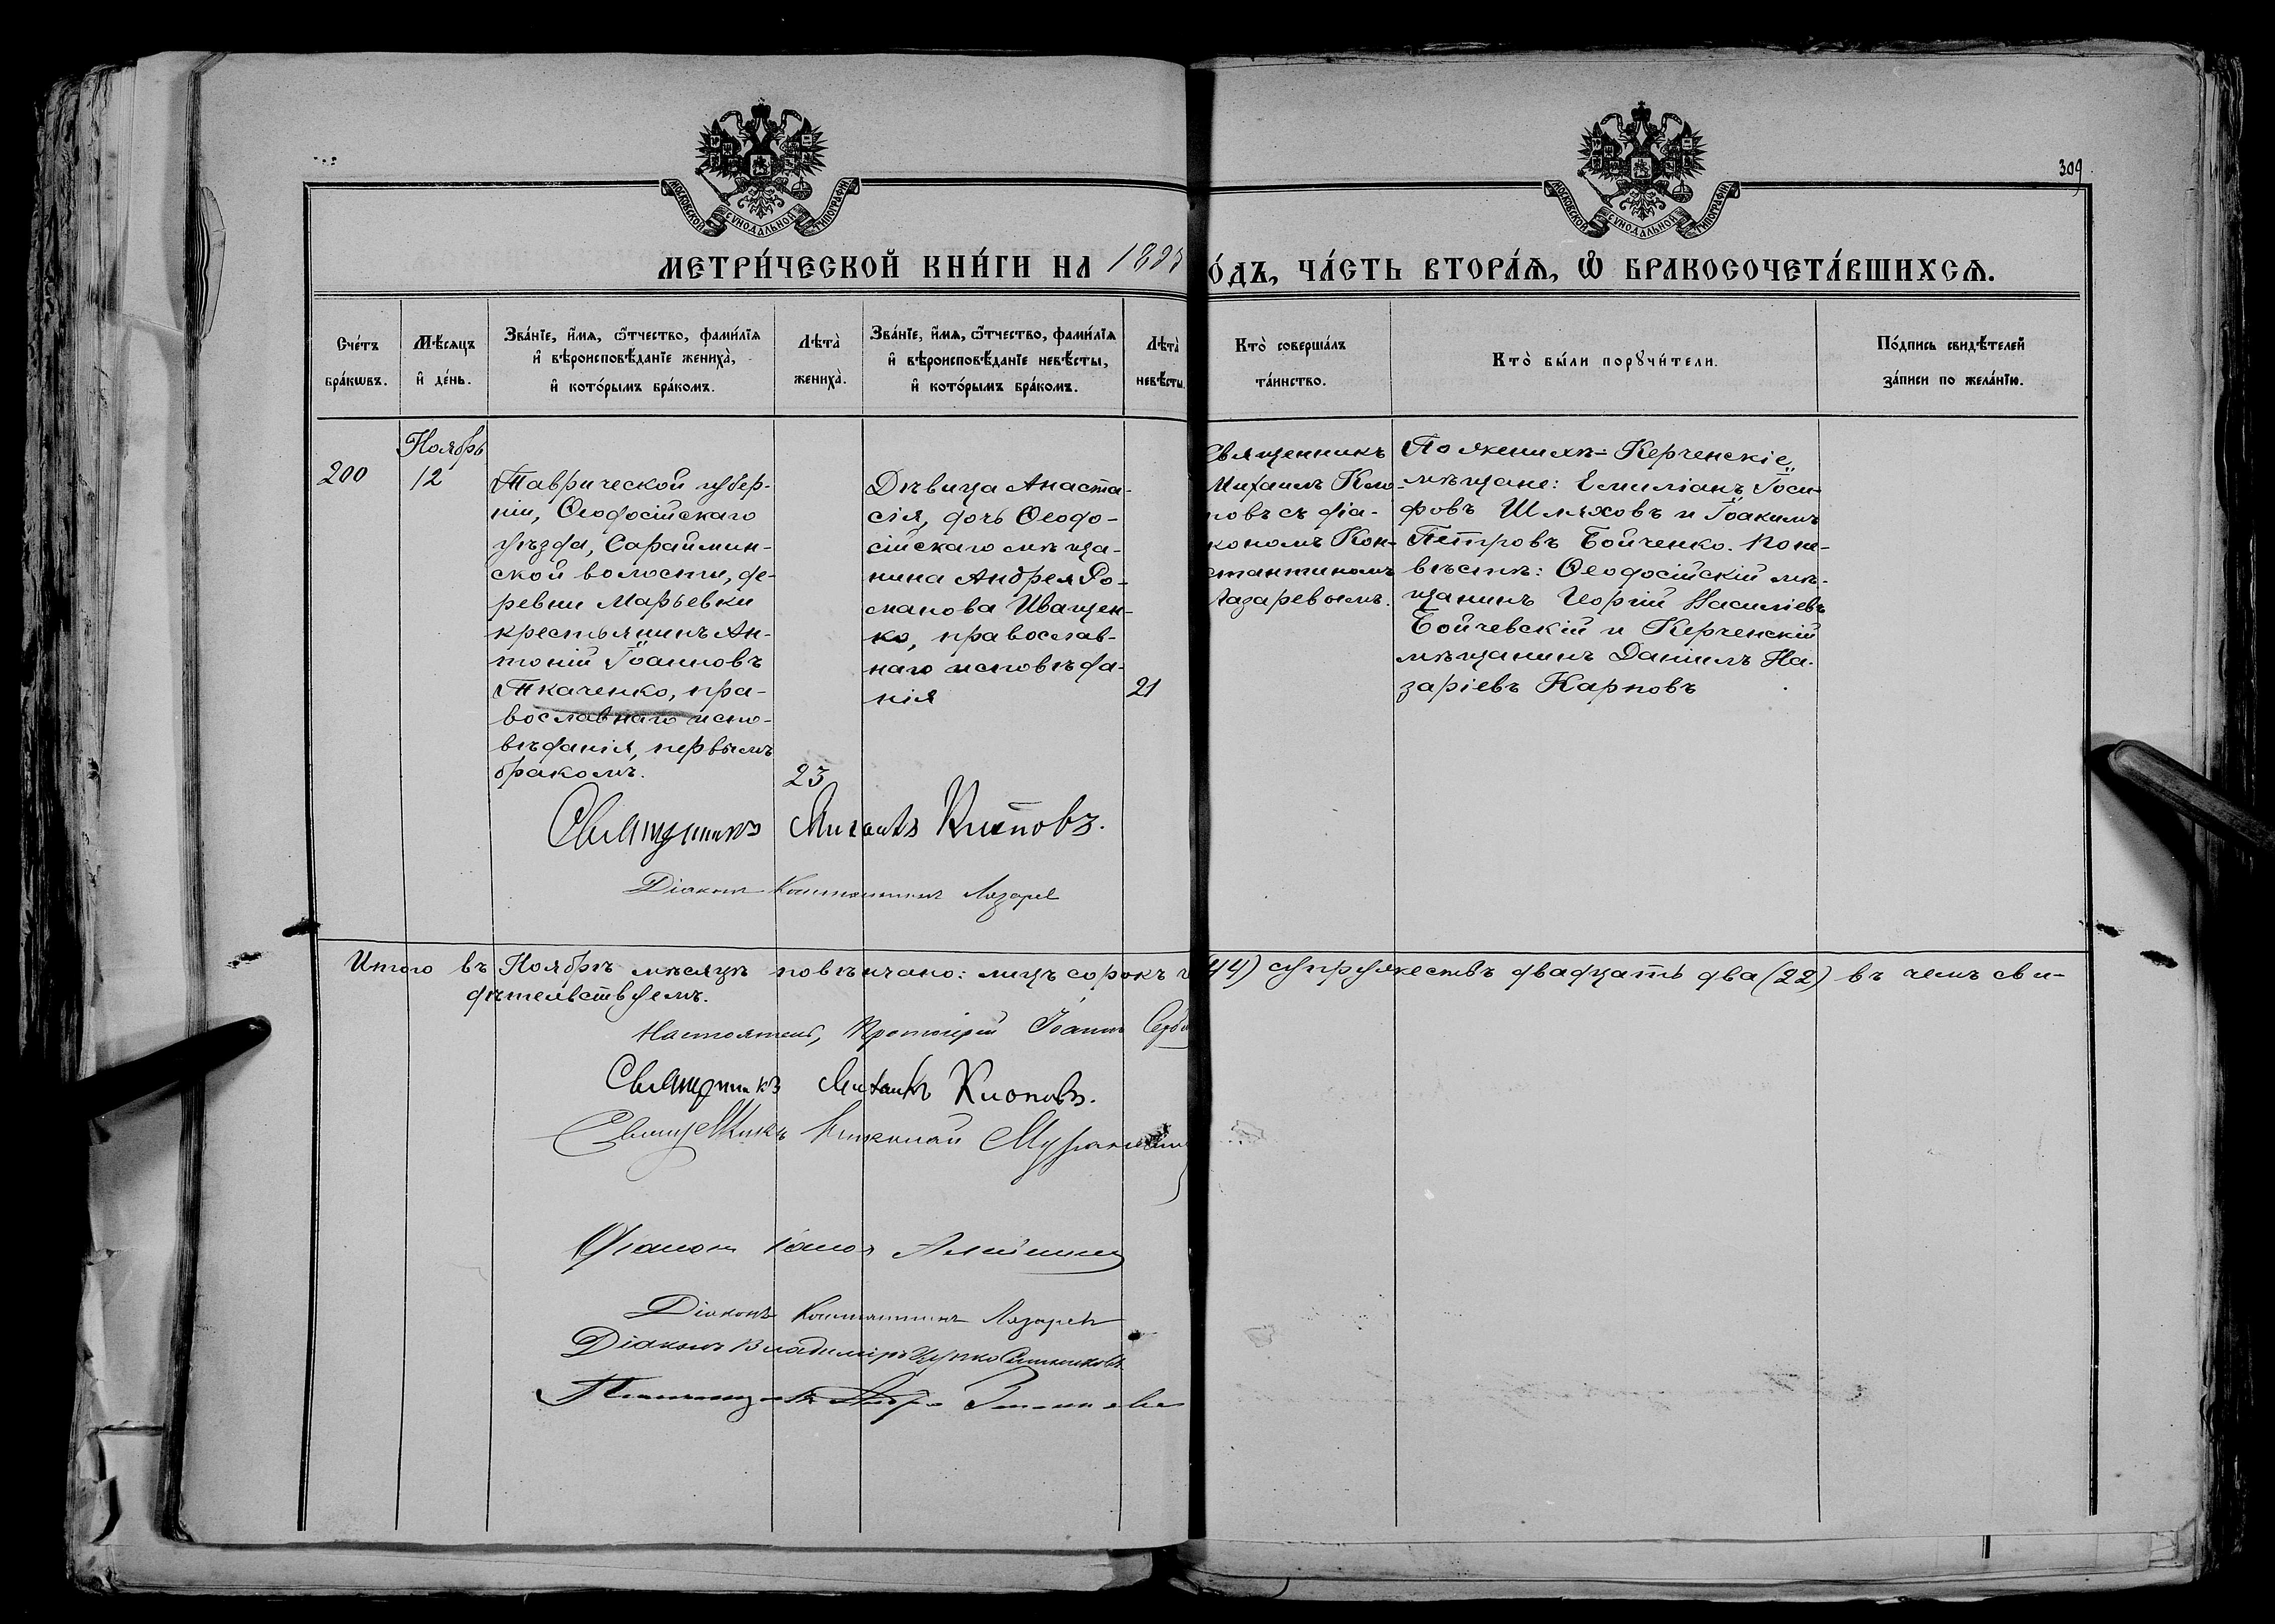 309
МОСКОВСКОЙ СѴНОДАЛЬНОЙ ТИПОГРАФІИ
МОСКОВСКОЙ СѴНОДАЛЬНОЙ ТИПОГРАФІИ
МЕТРИ́ЧЕСКОЙ КНИ́ГИ НА
О́ДЪ, ЧА́СТЬ ВТОРА́Ѧ, Ѽ БРАКОСОЧЕТА́ВШИХСѦ.
Сче́тъ бра́кѡвъ.
Мѣ́сяцъ и҆ де́нь.
Зва́нїе, и҆́мѧ, ѻ҆́тчество, фами́лїѧ
и҆ вѣроисповѣ́данїе жениха̀,
и҆ кото́рымъ бра́комъ.
Лѣта̀ жениха̀.
Зва́нїе, и҆́мѧ, ѻ҆́тчество, фами́лїѧ
и҆ вѣроисповѣ́данїе невѣ́сты,
и҆ кото́рымъ бра́комъ.
Лѣта̀ невѣ́сты.
Кто̀ соверша́лъ
та́инство.
Кто̀ бы́ли порꙋчи́тели.
По́дпись свидѣ́телей
за́писи по жела́нїю.
200
Ноябрь
12
Таврической губер-
ніи, Ѳеодосійскаго
уѣзда, Сараймин-
ской волости, де-
ревни Марьевки
крестьянинъ Ан-
тоній Іоанновъ
Ткаченко, пра-
вославнаго испо-
вѣданія, первымъ
бракомъ.
23
Дѣвица Анаста-
сія, дочь Ѳеодо-
сійскаго мѣща-
нина Андрея Ро-
манова Иващен-
ко, православ-
наго исповѣда-
нія
21
Священникъ
Михаилъ Кло-
повъ съ діа-
кономъ Кон-
стантиномъ
Лазаревымъ.
По женихѣ - Керченскіе
мѣщане: Емиліанъ Іоси-
фовъ Шляховъ и Іоакимъ
Петровъ Бойченко. По не-
вѣстѣ: Ѳеодосійскій мѣ-
щанинъ Георгій Василіевъ
Бойчевскій и Керченскій
мѣщанинъ Даніилъ На-
заріевъ Карповъ
Священникъ Михаилъ Клоповъ.
Діаконъ Константинъ Лазаревъ
Итого въ Ноябрѣ мѣсяцѣ повѣнчано: лицъ сорокъ
44) супружествъ двадцать два (22) въ чемъ сви-
дѣтельствуемъ.
Настоятель, Протоіерей Іоаннъ
Священникъ Михаилъ Клоповъ.
Священникъ Николай
Діаконъ
Діаконъ Константинъ Лазаревъ
Діаконъ Владиміръ